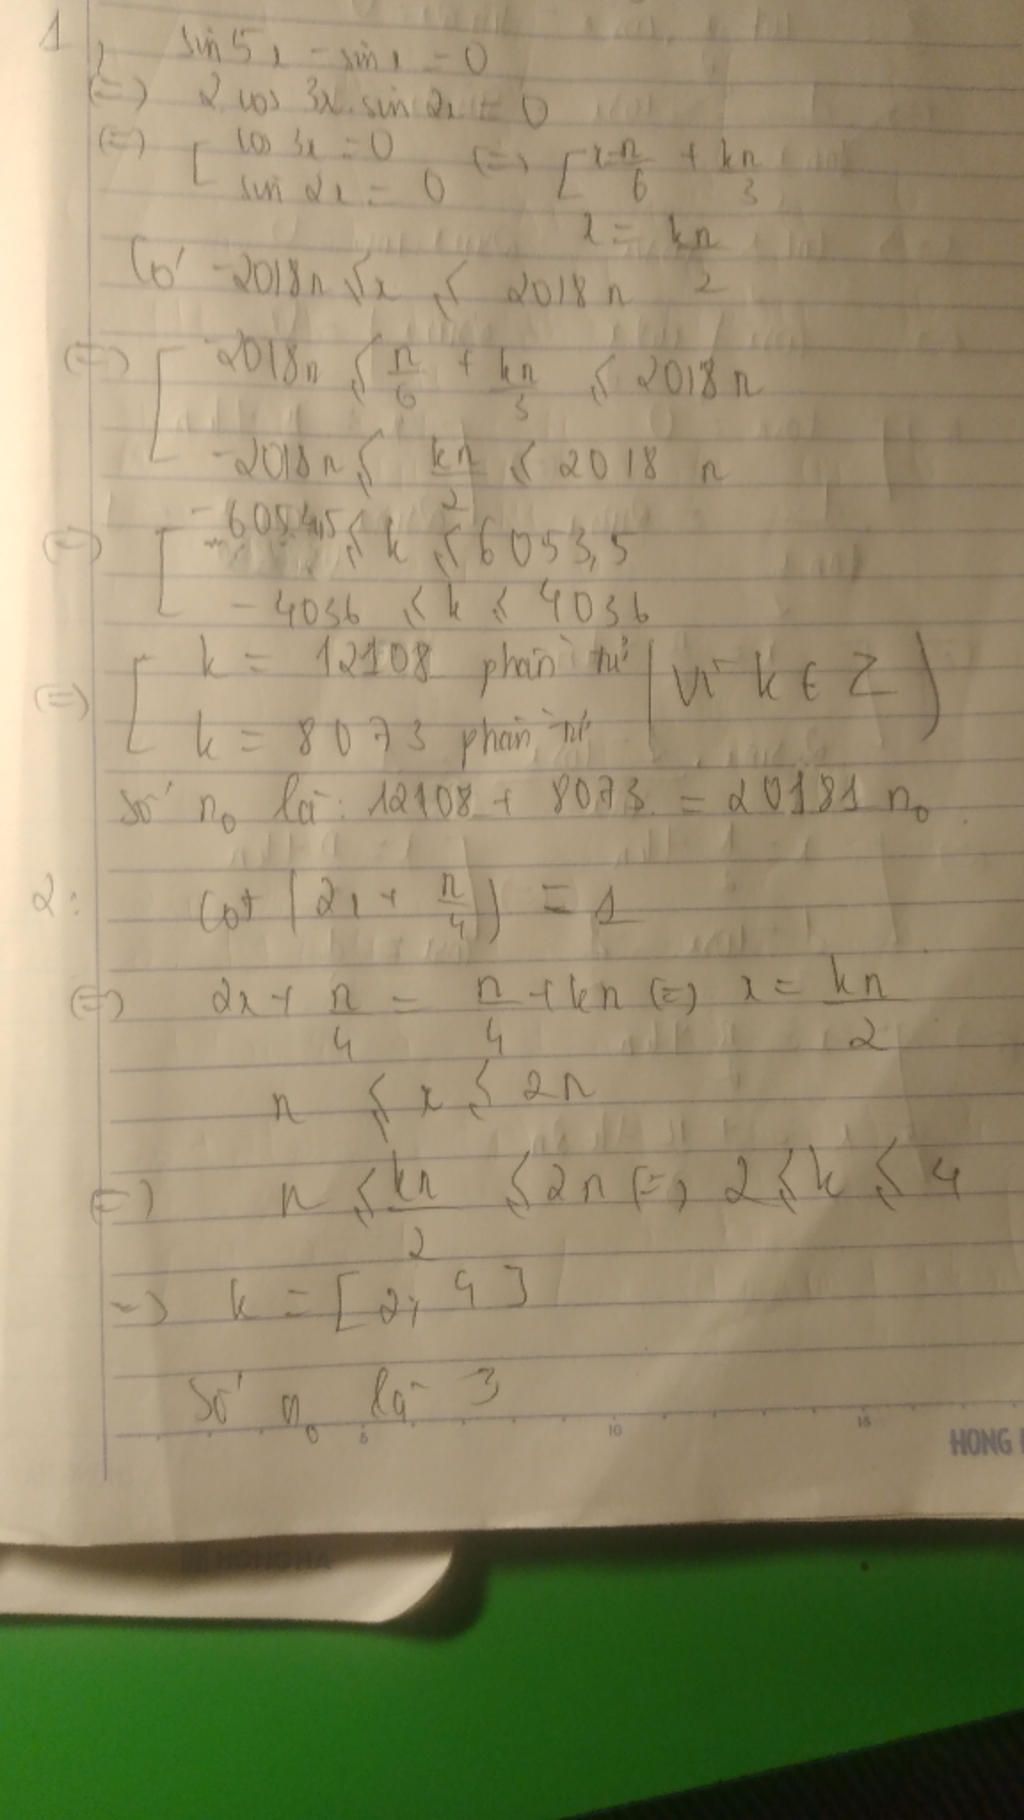 1, sin 5x - sin x = 0
(=) 2 cos 3x. sin 2x = 0
(=) [ cos 3x = 0 (=) [ x = π/6 + kπ/3
sin 2x = 0
x = kπ/2
Có -2018π ≤ x ≤ 2018π
(=) [ -2018π ≤ π/6 + kπ/3 ≤ 2018π
-2018π ≤ kπ/2 ≤ 2018π
(=) [ -6054,5 ≤ k ≤ 6053,5
-4036 ≤ k ≤ 4036
(=) [ k = 12108 phần tử (vì k ∈ Z)
k = 8073 phần tử
Số n₀ là: 12108 + 8073 = 20181 n₀
2: cot (2x + π/4) = 1
(=) 2x + π/4 = π/4 + kπ (=) x = kπ/2
π ≤ x ≤ 2π
(=) π ≤ kπ/2 ≤ 2π (=) 2 ≤ k ≤ 4
=) k = [2; 4]
Số n₀ là 3
5 10 15
HONG